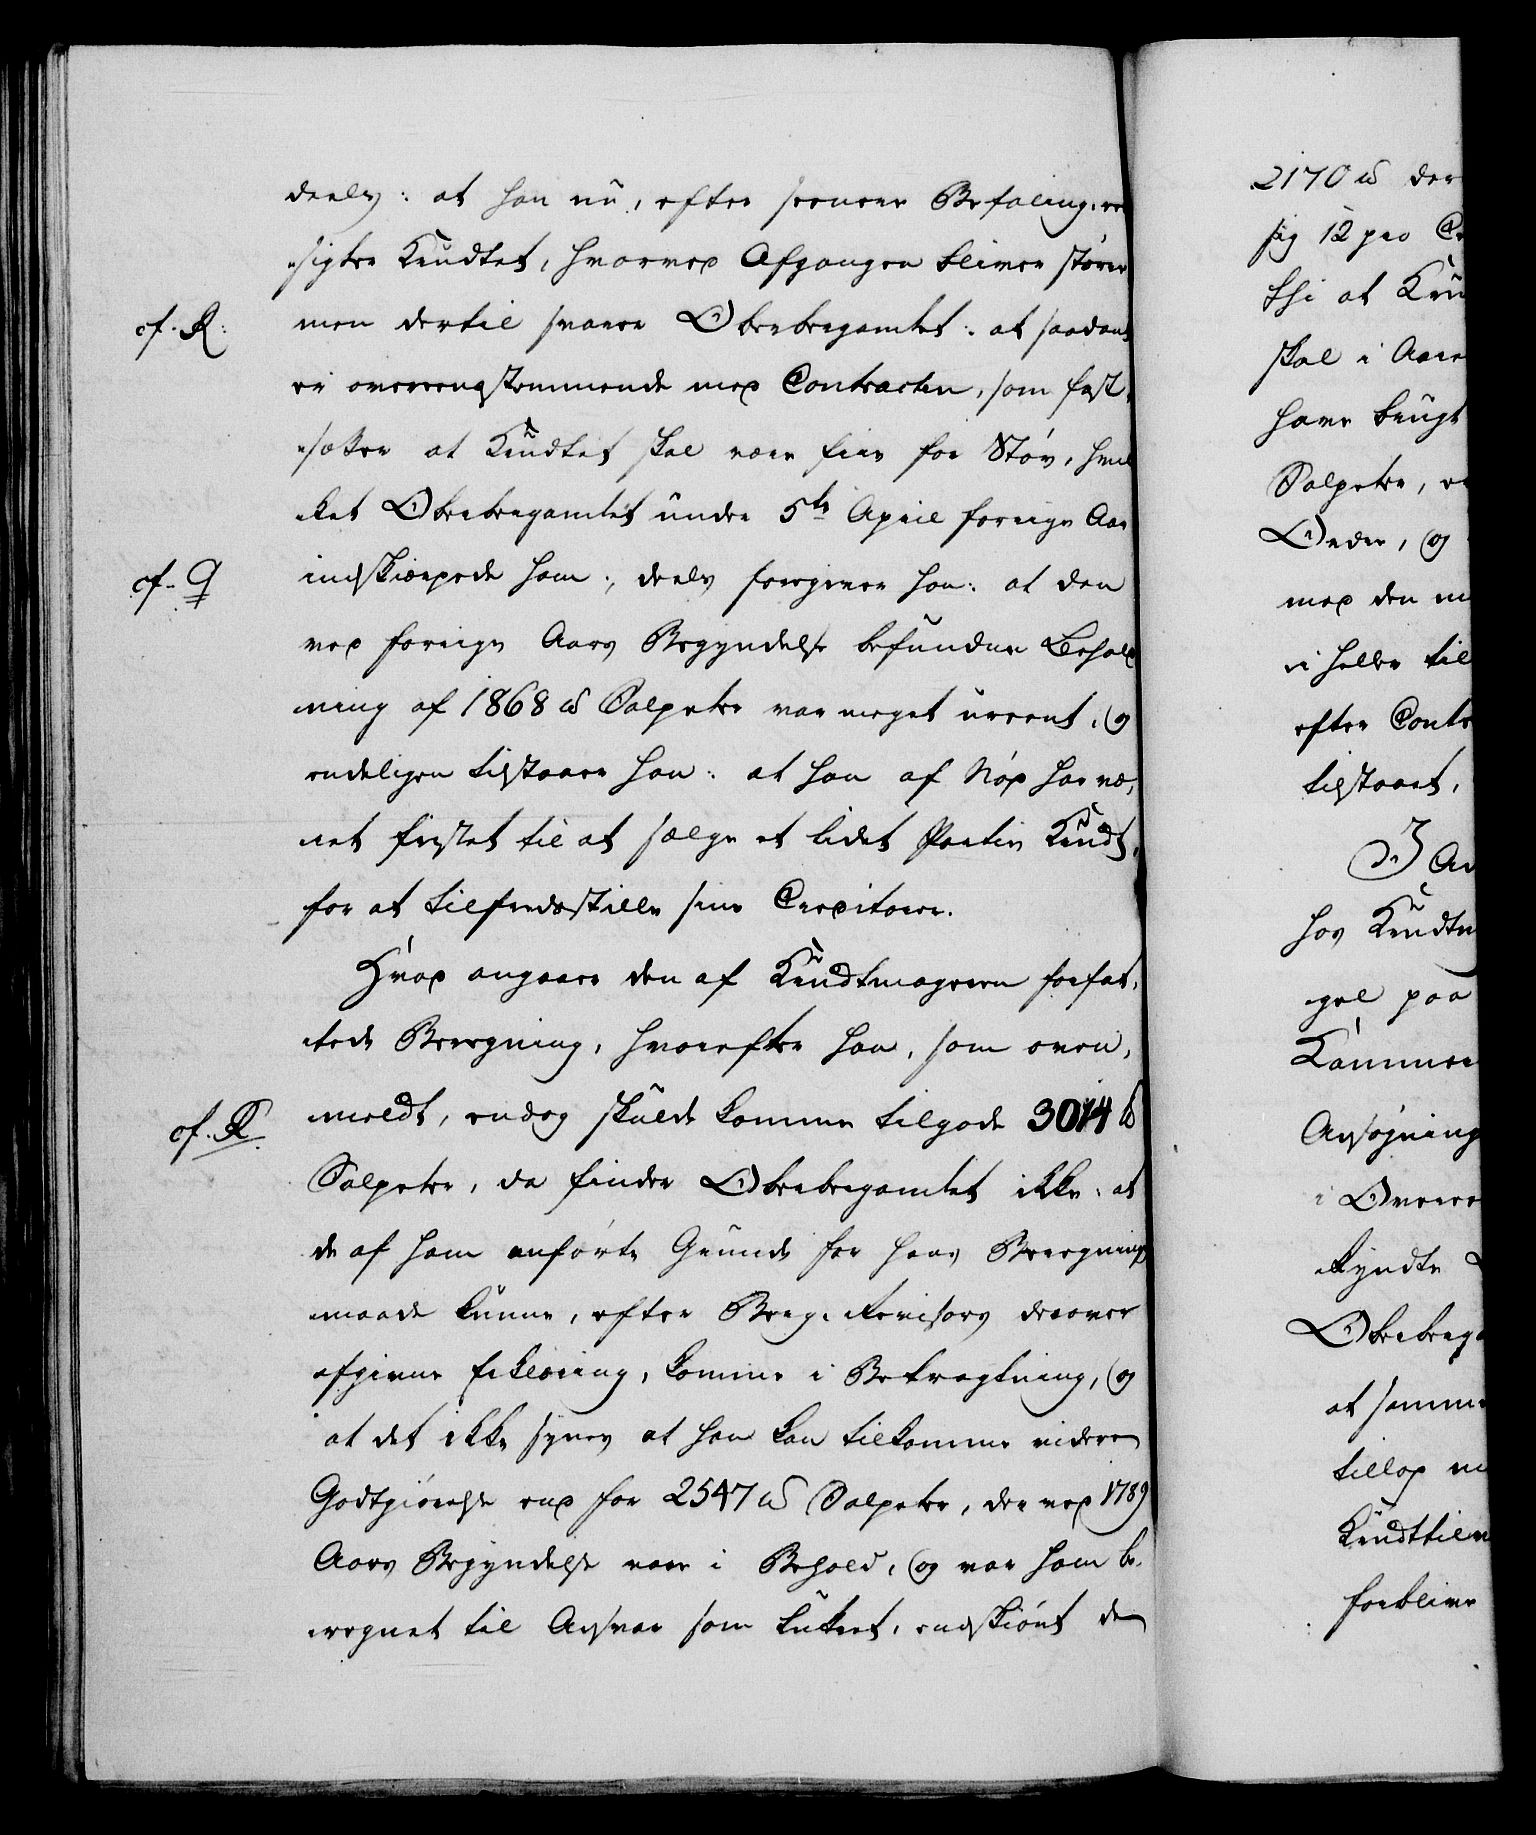 deels: at han nu, efter seenere Befaling, ud
sigter Krudtet, hvorved Afgangen bliver større
cf. R: men dertil svarer Oberbergamtet: at saadant
er overeensstemmende med Contracten, som fast
sætter at Krudtet skal være frie for Støv, hvil
ket Oberbergamtet under 5te April forrige Aar
cf. Q indskiærpede ham; deels foregiver han: at den
ved forrige Aars Begyndelse befundne Behold
ning af 1868 ℔ Salpeter var meget ureent, og
endeligen tilstaaer han: at han af Nød har væ,
ret fristet til at sælge et lidet Partie Krudt,
for at tilfredsstille sine Creditorer.
Hvad angaaer den af Krudtmageren forfat,
tede Beregning, hvorefter han, som oven,
cf. R. meldt, endog skulde komme tilgode 3014 ℔
Salpeter, da finder Oberbergamtet ikke: at
de af ham anførte Grunde for hans Beregnings
maade kunne, efter Berg-Revisors derover
afgivne Erklæring, komme i Betragtning, og
at det ikke synes at han kan tilkomme videre
Godtgiørelse end for 2547 ℔ Salpeter, der ved 1789
Aars Begyndelse vare i Behold, og var ham be,
regnet til Ansvar som lutret, endskiønt de
2170 ℔ der
sig 12 pro C
thi at Kru
skal i Aare
have brugt
Salpeter,
Order, og
med den
ei heller til
efter Contr
tilstaaet,
I An
hos Krudtm
gel paa
Kammer
Ansøgning
i Overe
kyndte
Oberberga
at samme
tillod
Krudttilv
forblive